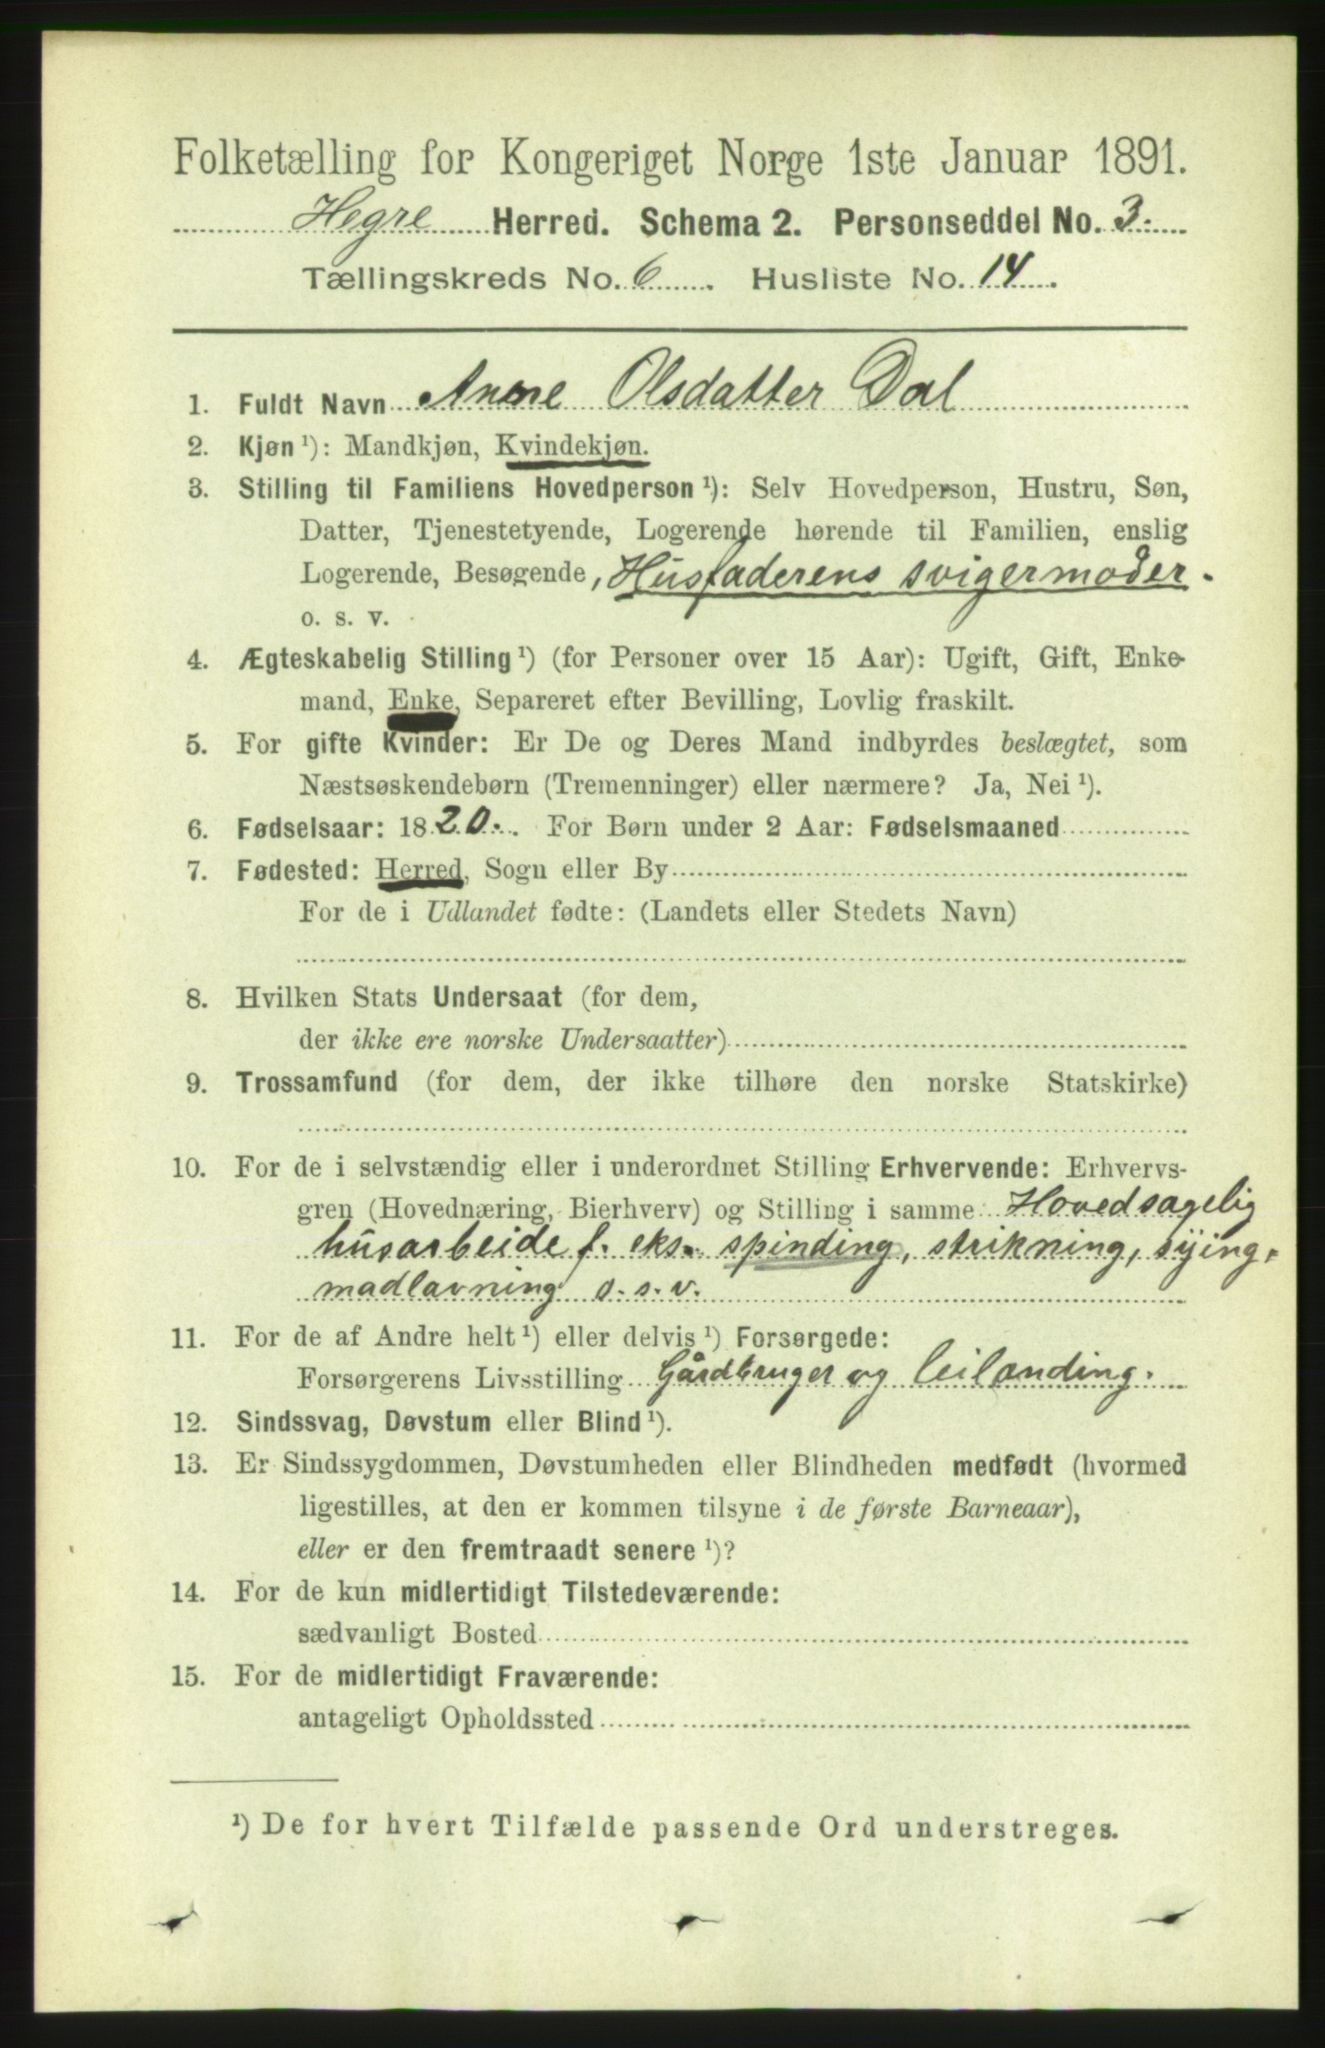 Folketælling for Kongeriget Norge 1ste Januar 1891.
Hegre Herred. Schema 2. Personseddel No. 3.
Tællingskreds No. 6. Husliste No. 14.
1. Fuldt Navn Anne Olsdatter Dal
2. Kjøn ¹): Mandkjøn, Kvindekjøn.
3. Stilling til Familiens Hovedperson ¹): Selv Hovedperson, Hustru, Søn,
Datter, Tjenestetyende, Logerende hørende til Familien, enslig
Logerende, Besøgende, Husfaderens svigermoder.
o. s. v.
4. Ægteskabelig Stilling ¹) (for Personer over 15 Aar): Ugift, Gift, Enke-
mand, Enke, Separeret efter Bevilling, Lovlig fraskilt.
5. For gifte Kvinder: Er De og Deres Mand indbyrdes beslægtet, som
Næstsøskendebørn (Tremenninger) eller nærmere? Ja, Nei ¹).
6. Fødselsaar: 1820. For Børn under 2 Aar: Fødselsmaaned
7. Fødested: Herred, Sogn eller By
For de i Udlandet fødte: (Landets eller Stedets Navn)
8. Hvilken Stats Undersaat (for dem,
der ikke ere norske Undersaatter)
9. Trossamfund (for dem, der ikke tilhøre den norske Statskirke)
10. For de i selvstændig eller i underordnet Stilling Erhvervende: Erhvervs-
gren (Hovednæring, Bierhverv) og Stilling i samme Hovedsagelig
husarbeide f. eks. spinding, strikning, sying,
madlavning o. s. v.
11. For de af Andre helt ¹) eller delvis ¹) Forsørgede:
Forsørgerens Livsstilling Gårdbruger og leilending.
12. Sindssvag, Døvstum eller Blind ¹).
13. Er Sindssygdommen, Døvstumheden eller Blindheden medfødt (hvormed
ligestilles, at den er kommen tilsyne i de første Barneaar),
eller er den fremtraadt senere ¹)?
14. For de kun midlertidigt Tilstedeværende:
sædvanligt Bosted
15. For de midlertidigt Fraværende:
antageligt Opholdssted
¹) De for hvert Tilfælde passende Ord understreges.